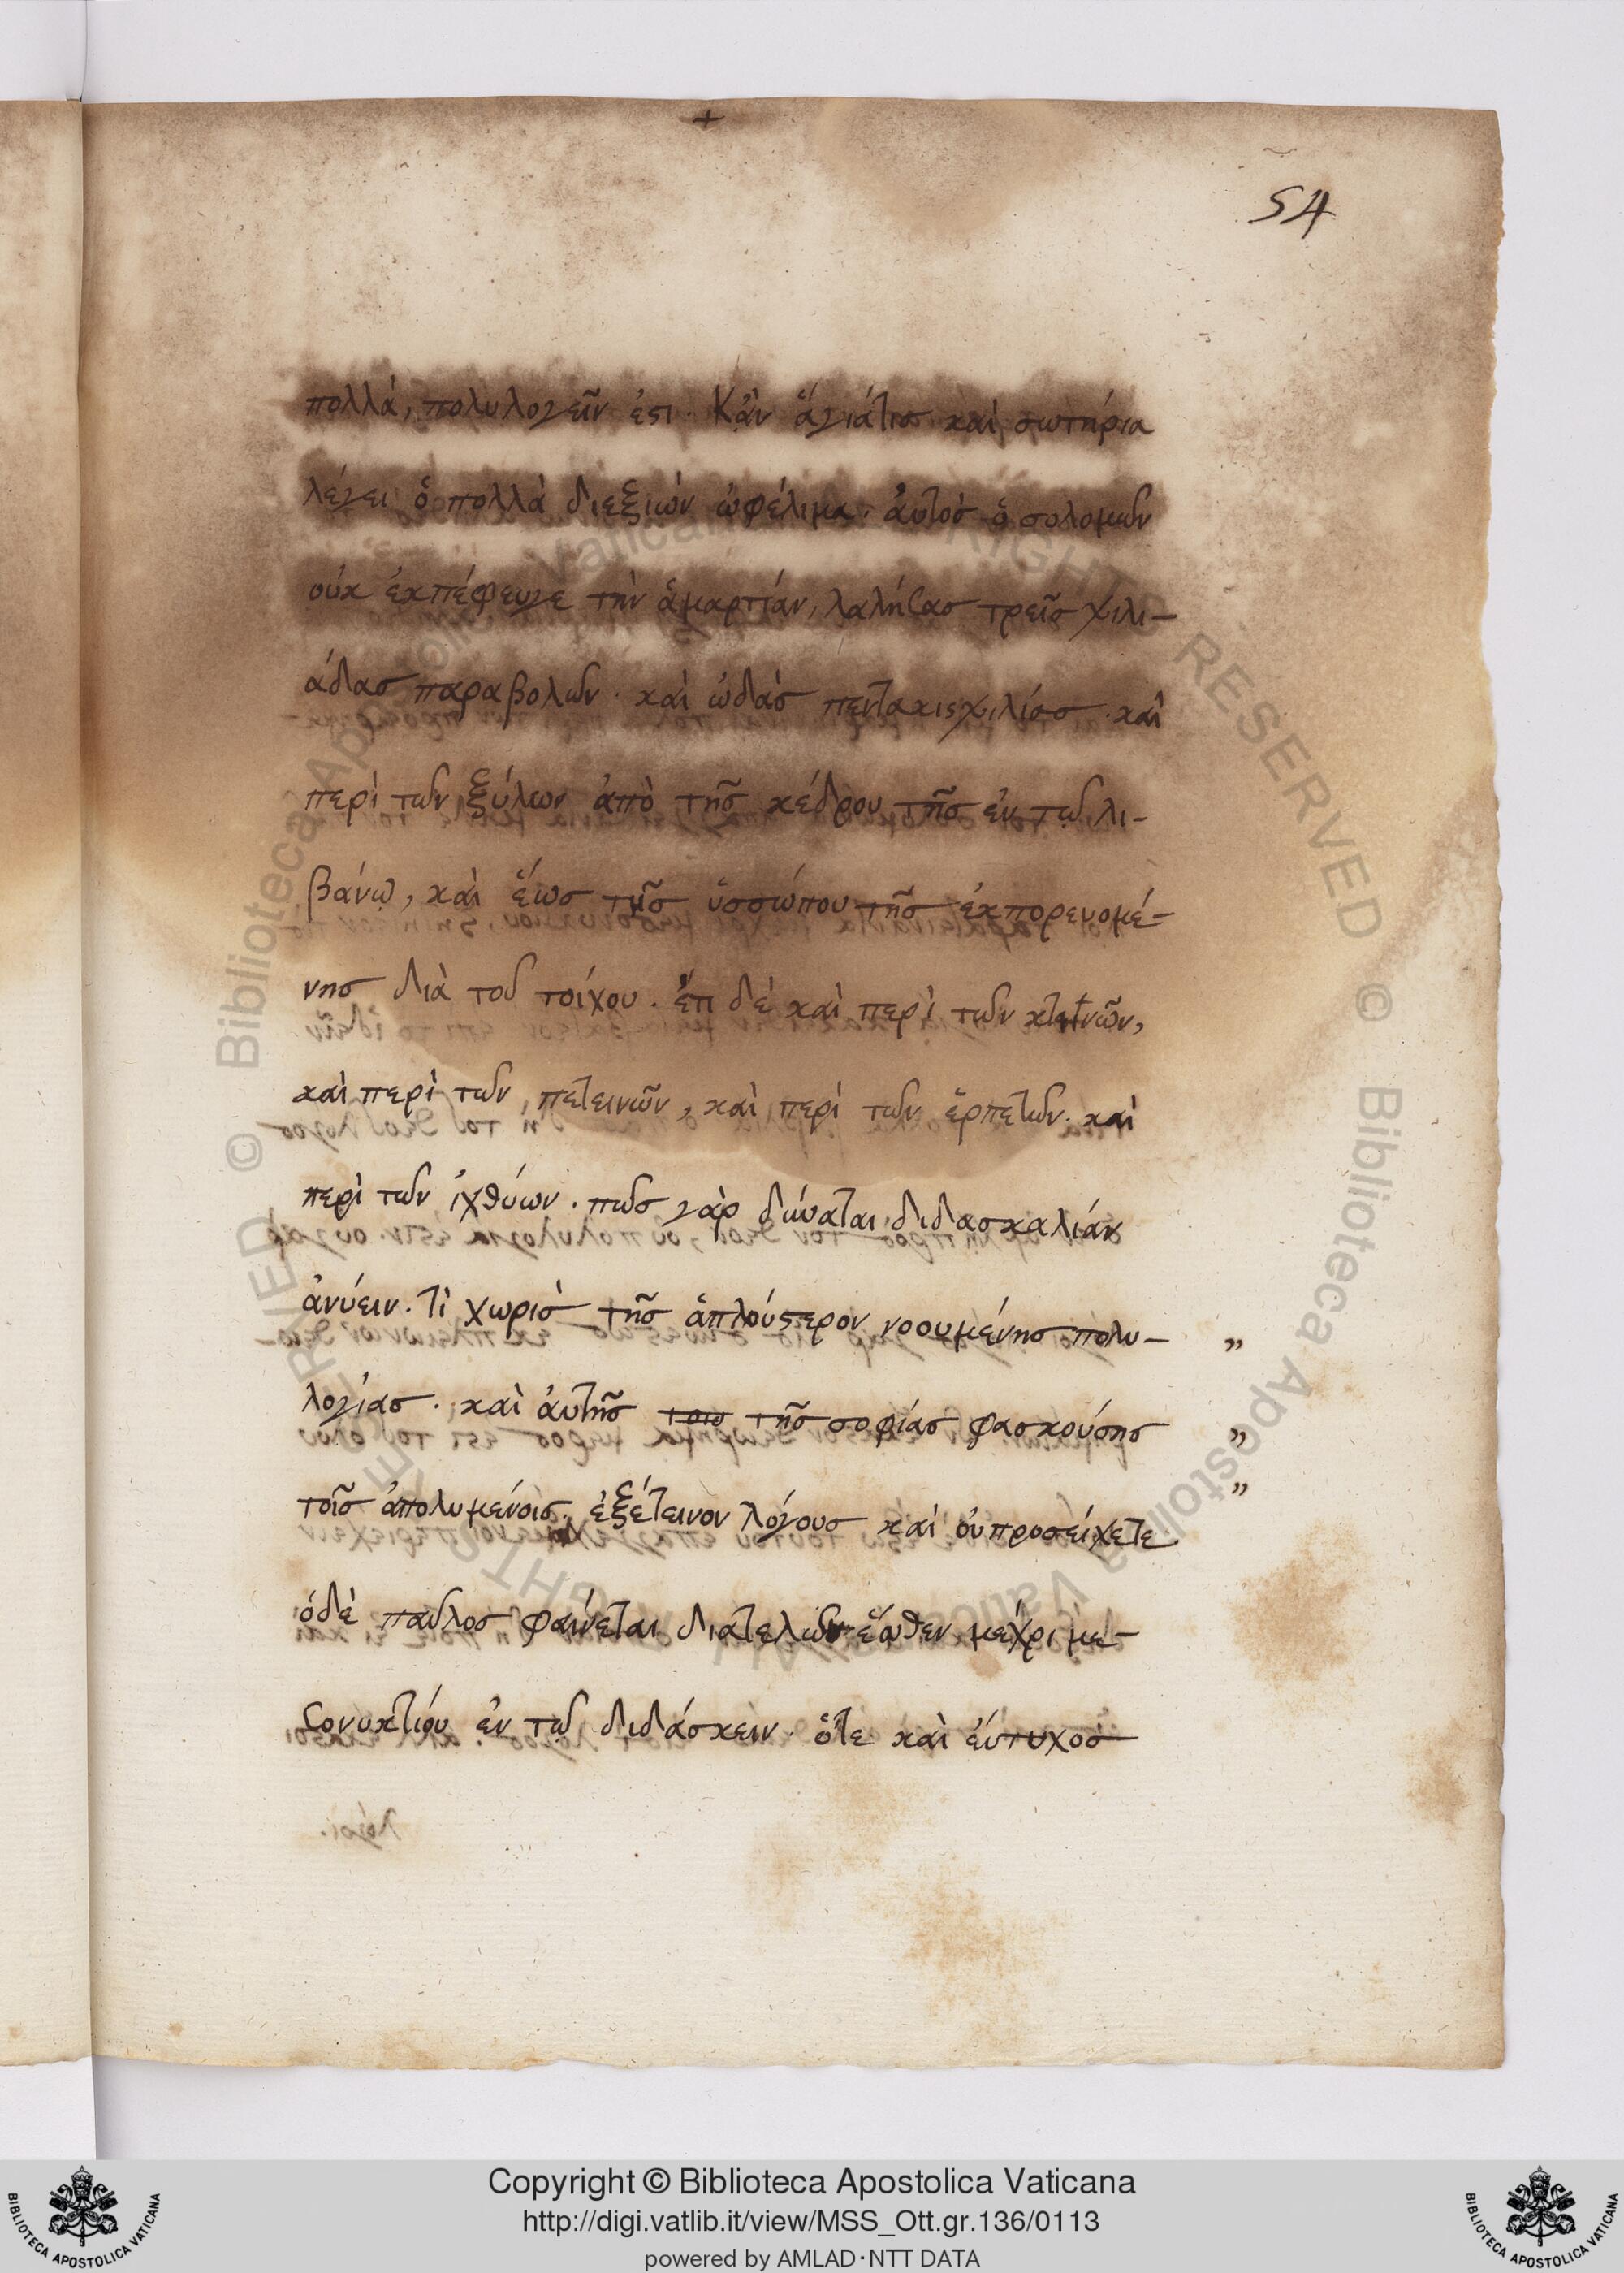 +
54
πολλά, πολυλογεῖν ἐστι. Κἂν ἅγιά τις καὶ σωτήρια
λέγει ὁ πολλὰ διεξιὼν ὠφέλιμα. ἀυτὸς ὁ σολομῶν
οὐκ ἐκπέφευγε τὴν ἁμαρτίαν, λαλήσας τρεῖς χιλι-
άδας παραβολῶν. καὶ ὠδὰς πεντακισχιλίας. καὶ
περὶ τῶν ξύλων ἀπὸ τῆς κέδρου τῆς ἐν τῷ λι-
βάνῳ, καὶ ἕως τῆς ὑσσώπου τῆς ἐκπορευομέ-
νης διὰ τοῦ τοίχου. ἔτι δὲ καὶ περὶ τῶν κτηνῶν,
καὶ περὶ τῶν πετεινῶν, καὶ περὶ τῶν ἑρπετῶν. καὶ
περὶ τῶν ἰχθύων. πῶς γὰρ δύναται διδασκαλίαν
ἀνύειν. τὶ χωρὶς τῆς ἁπλούστερον νοουμένης πολυ- „
λογίας. καὶ ἀυτῆς τῆς σοφίας φασκούσης „
τοῖς ἀπολυμένοις. ἐξέτεινον λόγους καὶ οὐ προσείχετε „
ὁ δὲ παῦλος φαίνεται διατελῶν ἕωθεν μέχρι με-
σονυκτίου ἐν τῷ διδάσκειν. ὅτε καὶ ἐύτυχος
Copyright © Biblioteca Apostolica Vaticana
http://digi.vatlib.it/view/MSS_Ott.gr.136/0113
powered by AMLAD·NTT DATA
BIBLIOTECA APOSTOLICA VATICANA
BIBLIOTECA APOSTOLICA VATICANA